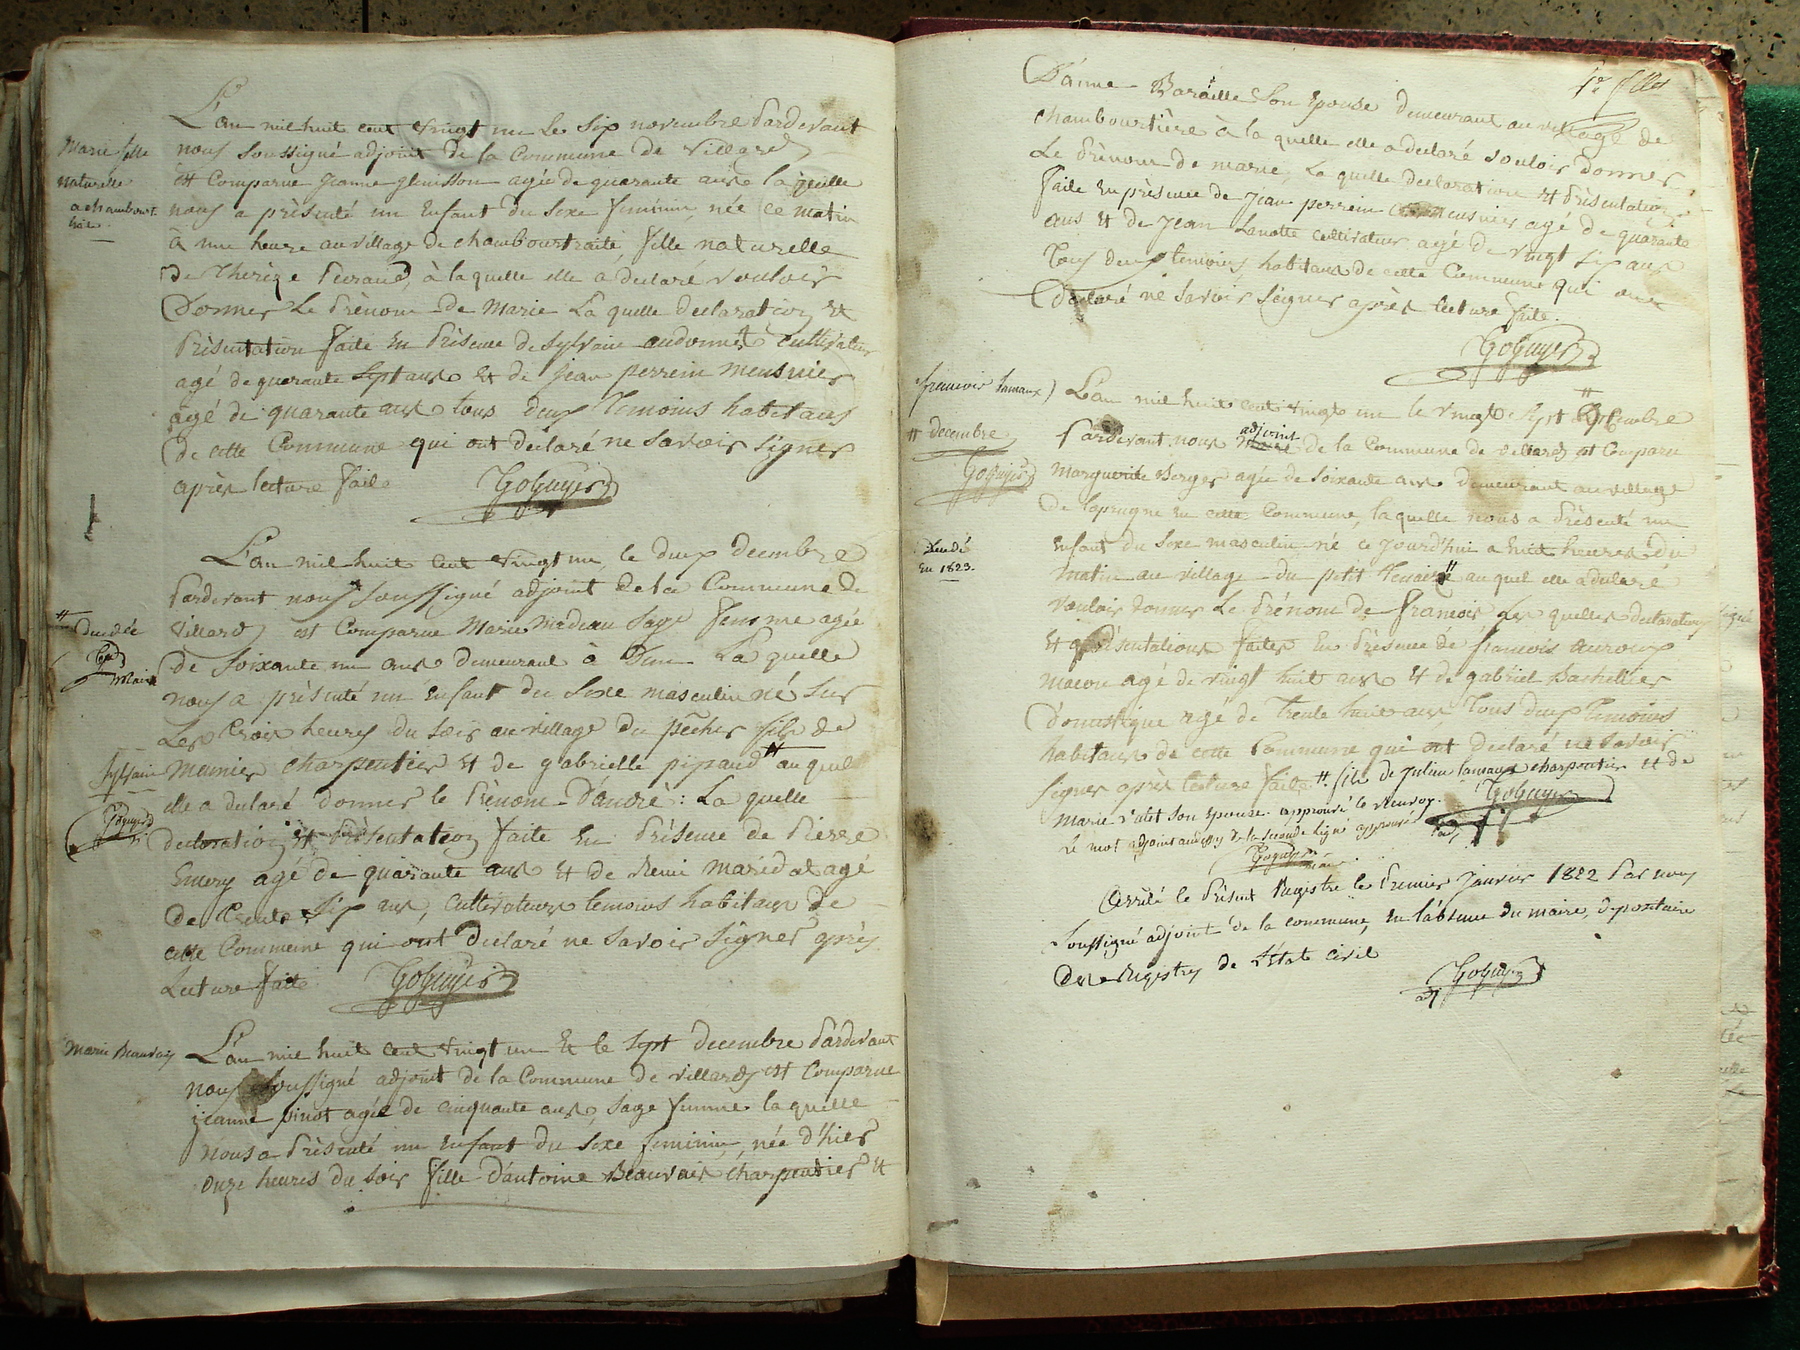 L'an mil huit cent vingt un Le Six novembre Pardevant
Marie fille
naturelle
a chambourt
nous Soussigné adjoint de la Commune de Villard
est Comparue Jeanne glenisson agée de quarante ans la quelle
nous a présenté un Enfant du Sexe feminin, née ce matin
à une heure au village de chambourtraite fille naturelle
de Therèze à laquelle elle a déclaré vouloir
Donner Le Prénom de Marie La quelle declaration Et
Présentation faite En Présence de Sylvain cultivateur
agé de quarante Sept ans Et de Jean perrein meusnier
agé de quarante ans tous deux Temoins habitans
de cette Commune qui ont déclaré ne Savoir Signer
après lecture faite GoGuyer
L'an mil huit Cent vingt un, le deux decembre
Pardevant nous Soussigné adjoint de la Commune de
andrée
maire
Villard est Comparue Marie Sage femme agée
de Soixante un ans demeurant à Dun La quelle
nous a présenté un Enfant du Sexe masculin né Sur
Les trois heures du Soir au village du pêcher fils de
# Sylvain
GoGuyer
meunier charpentier Et de gabrielle pipaud # au quel
elle a declaré donner le Prénom D'andré : La quelle
declaration Et Présentation faite En Présence de Pierre
Emery agé de quarante ans Et de Remi agé
de trente Six ans, Cultivateurs temoins habitans de
cette Commune qui ont Declaré ne Savoir Signer après
Lecture faite GoGuyer
Marie Beauvais
L'an mil huit cent vingt un Et le Sept Decembre Pardevant
nous Soussigné adjoint de la Commune de villards est Comparue
jeanne pinot agée de cinquante ans, Sage femme laquelle
nous a Présenté un Enfant du Sexe feminin, née d'hier
onze heures du Soir fille D'antoine Beauvais charpentier Et
D'anne Baraille Son Epouse demeurant au village de
chambourtière à la quelle elle a declaré vouloir donner
Le Prénom de marie, La quelle declaration Et Présentation
faite En présence de Jean perrein meusnier agé de quarante
ans Et de Jean Lamotte cultivateur agé de vingt Six ans
Tous deux temoins habitans de cette Commune qui ont
declaré ne Savoir Signer après lecture faite.
GoGuyer
francois Lamaux
# decembre
GoGuyer
L'an mil huit cent vingt un le vingt Sept #
Pardevant nous adjoint de la Commune de villards est Comparu
Marguerite Berger agée de Soixante ans demeurant au village
de laprugne En cette Commune, laquelle nous a Présenté un
En 1823.
Enfant du Sexe masculin né ce jourd'hui a huit heures du
matin au village du petit # au quel elle a declaré
vouloir donner Le Prénom de francois Les quelles declarations
Et présentations faites En Présence de francois auroux
macon agé de vingt huit ans Et de gabriel Bachellier
Domestique agé de Trente huit ans Tous deux Temoins
habitans de cette Commune qui ont declaré ne Savoir
Signer après lecture faite # fils de Julien Lamaux charpentier Et de
Marie Son Epouse approuvé le renvoy. GoGuyer
Le mot adjoint audessus de la Seconde ligne approuvé adj
GoGuyer
Arrêté le Présent Registre le Premier Janvier 1822 Par nous
Soussigné adjoint de la commune, En l'absence du maire, dépositaire
des Registres de l'état civil
GoGuyer
adj